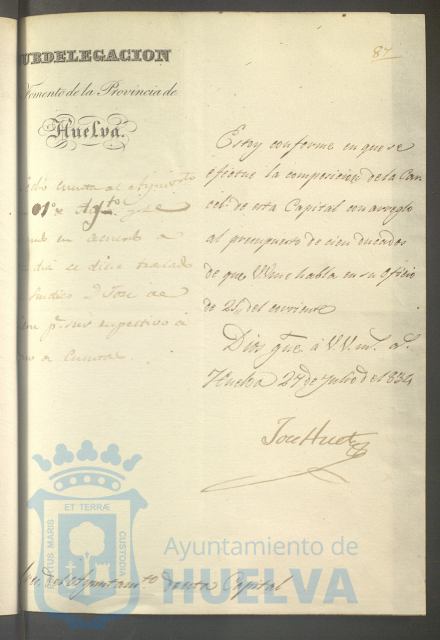 87
UBDELEGACION
Fomento de la Provincia de
Huelva.
Estoy conforme en que se
efectue la composicion de la Car
cel de esta Capital con arreglo
al presupuesto de cien ducados
de que VV me habla en su oficio
de 25 del corriente
Dios gue á V.V. ms. as.
Huelva 27 de Julio de 1834
Jose Huet
cuenta al Ayunto
01º Agto
en
se dice
Sindico D Jose de
pr ser respectivo á
de
del Ayuntamto de esta Capital
PORTUS MARIS
ET TERRÆ
CUSTODIA
Ayuntamiento de
HUELVA